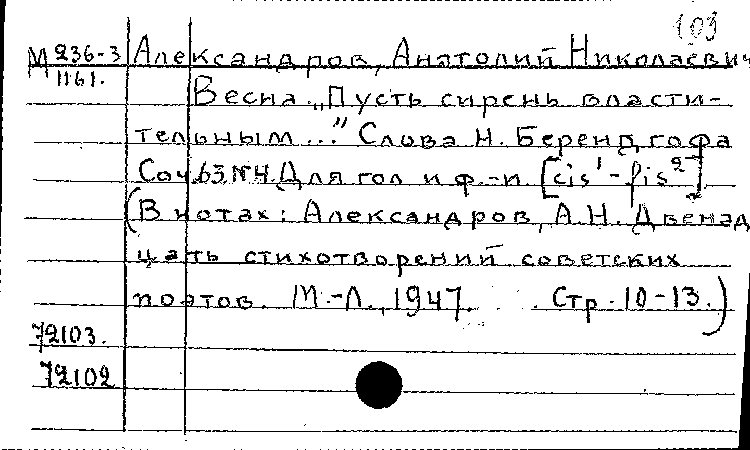 103
М 236-3 Александров, Анатолий Николаевич
1161. Весна. „Пусть сирень власти-
тельным..." Слова Н. Берендгофа
Соч. 63 №4. Для гол. и ф.-п. [cis¹-fis²].
(В нотах: Александров, А.Н. Двенад
цать стихотворений советских
поэтов. М.-Л., 1947. Стр. 10-13.)
72103.
72102